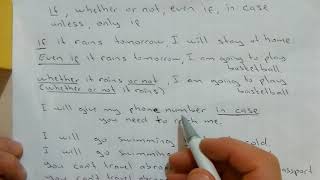 If, whether or not, even if, in case
unless, only if
If it rains tomorrow, I will stay at home.
Even if it rains tomorrow, I am going to play
basketball.
whether it rains or not, I am going to play
(whether or not it rains) basketball
I will give my phone number in case
you need to reach me.
I will go swimming cold.
I will go swimming
You can't travel abroad passport
You can't travel